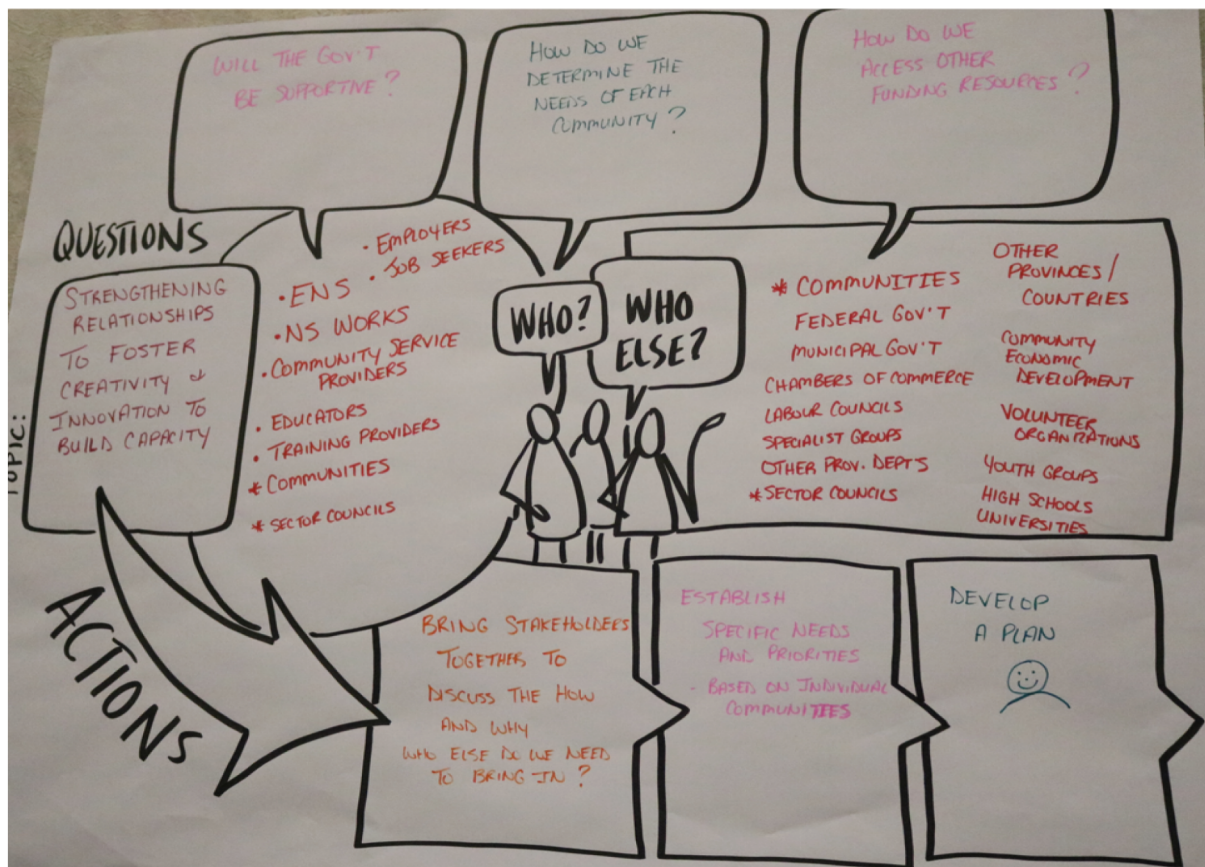 WILL THE GOV'T
BE SUPPORTIVE?
HOW DO WE
DETERMINE THE
NEEDS OF EACH
COMMUNITY?
HOW DO WE
ACCESS OTHER
FUNDING RESOURCES?
QUESTIONS
TOPIC:
STRENGTHENING
RELATIONSHIPS
TO FOSTER
CREATIVITY &
INNOVATION TO
BUILD CAPACITY
• EMPLOYERS
• JOB SEEKERS
• ENS
• NS WORKS
• COMMUNITY SERVICE
PROVIDERS
• EDUCATORS
• TRAINING PROVIDERS
* COMMUNITIES
* SECTOR COUNCILS
WHO?
WHO
ELSE?
* COMMUNITIES
FEDERAL GOV'T
MUNICIPAL GOV'T
CHAMBERS OF COMMERCE
LABOUR COUNCILS
SPECIALIST GROUPS
OTHER PROV. DEPT'S
* SECTOR COUNCILS
OTHER
PROVINCES/
COUNTRIES
COMMUNITY
ECONOMIC
DEVELOPMENT
VOLUNTEER
ORGANIZATIONS
YOUTH GROUPS
HIGH SCHOOLS
UNIVERSITIES
ACTIONS
BRING STAKEHOLDERS
TOGETHER TO
DISCUSS THE HOW
AND WHY
WHO ELSE DO WE NEED
TO BRING IN?
ESTABLISH
SPECIFIC NEEDS
AND PRIORITIES
- BASED ON INDIVIDUAL
COMMUNITIES
DEVELOP
A PLAN